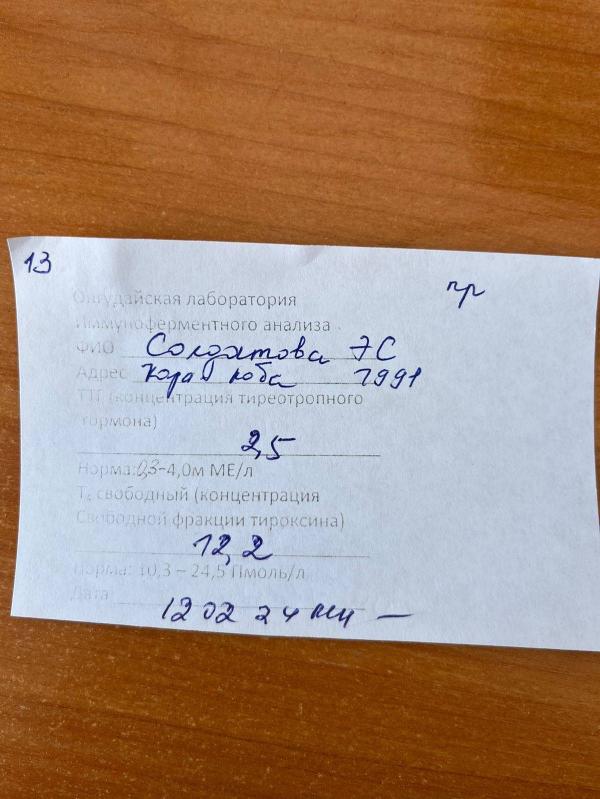 13
пр
Онгудайская лаборатория
Иммуноферментного анализа
ФИО Солдатова ЭС
Адрес Кара Коба 1991
ТТГ (концентрация тиреотропного
гормона)
2,5
Норма:0,3-4,0м МЕ/л
T₄ свободный (концентрация
Свободной фракции тироксина)
12,2
Норма: 10,3 – 24,5 Пмоль/л
Дата
12 02 24